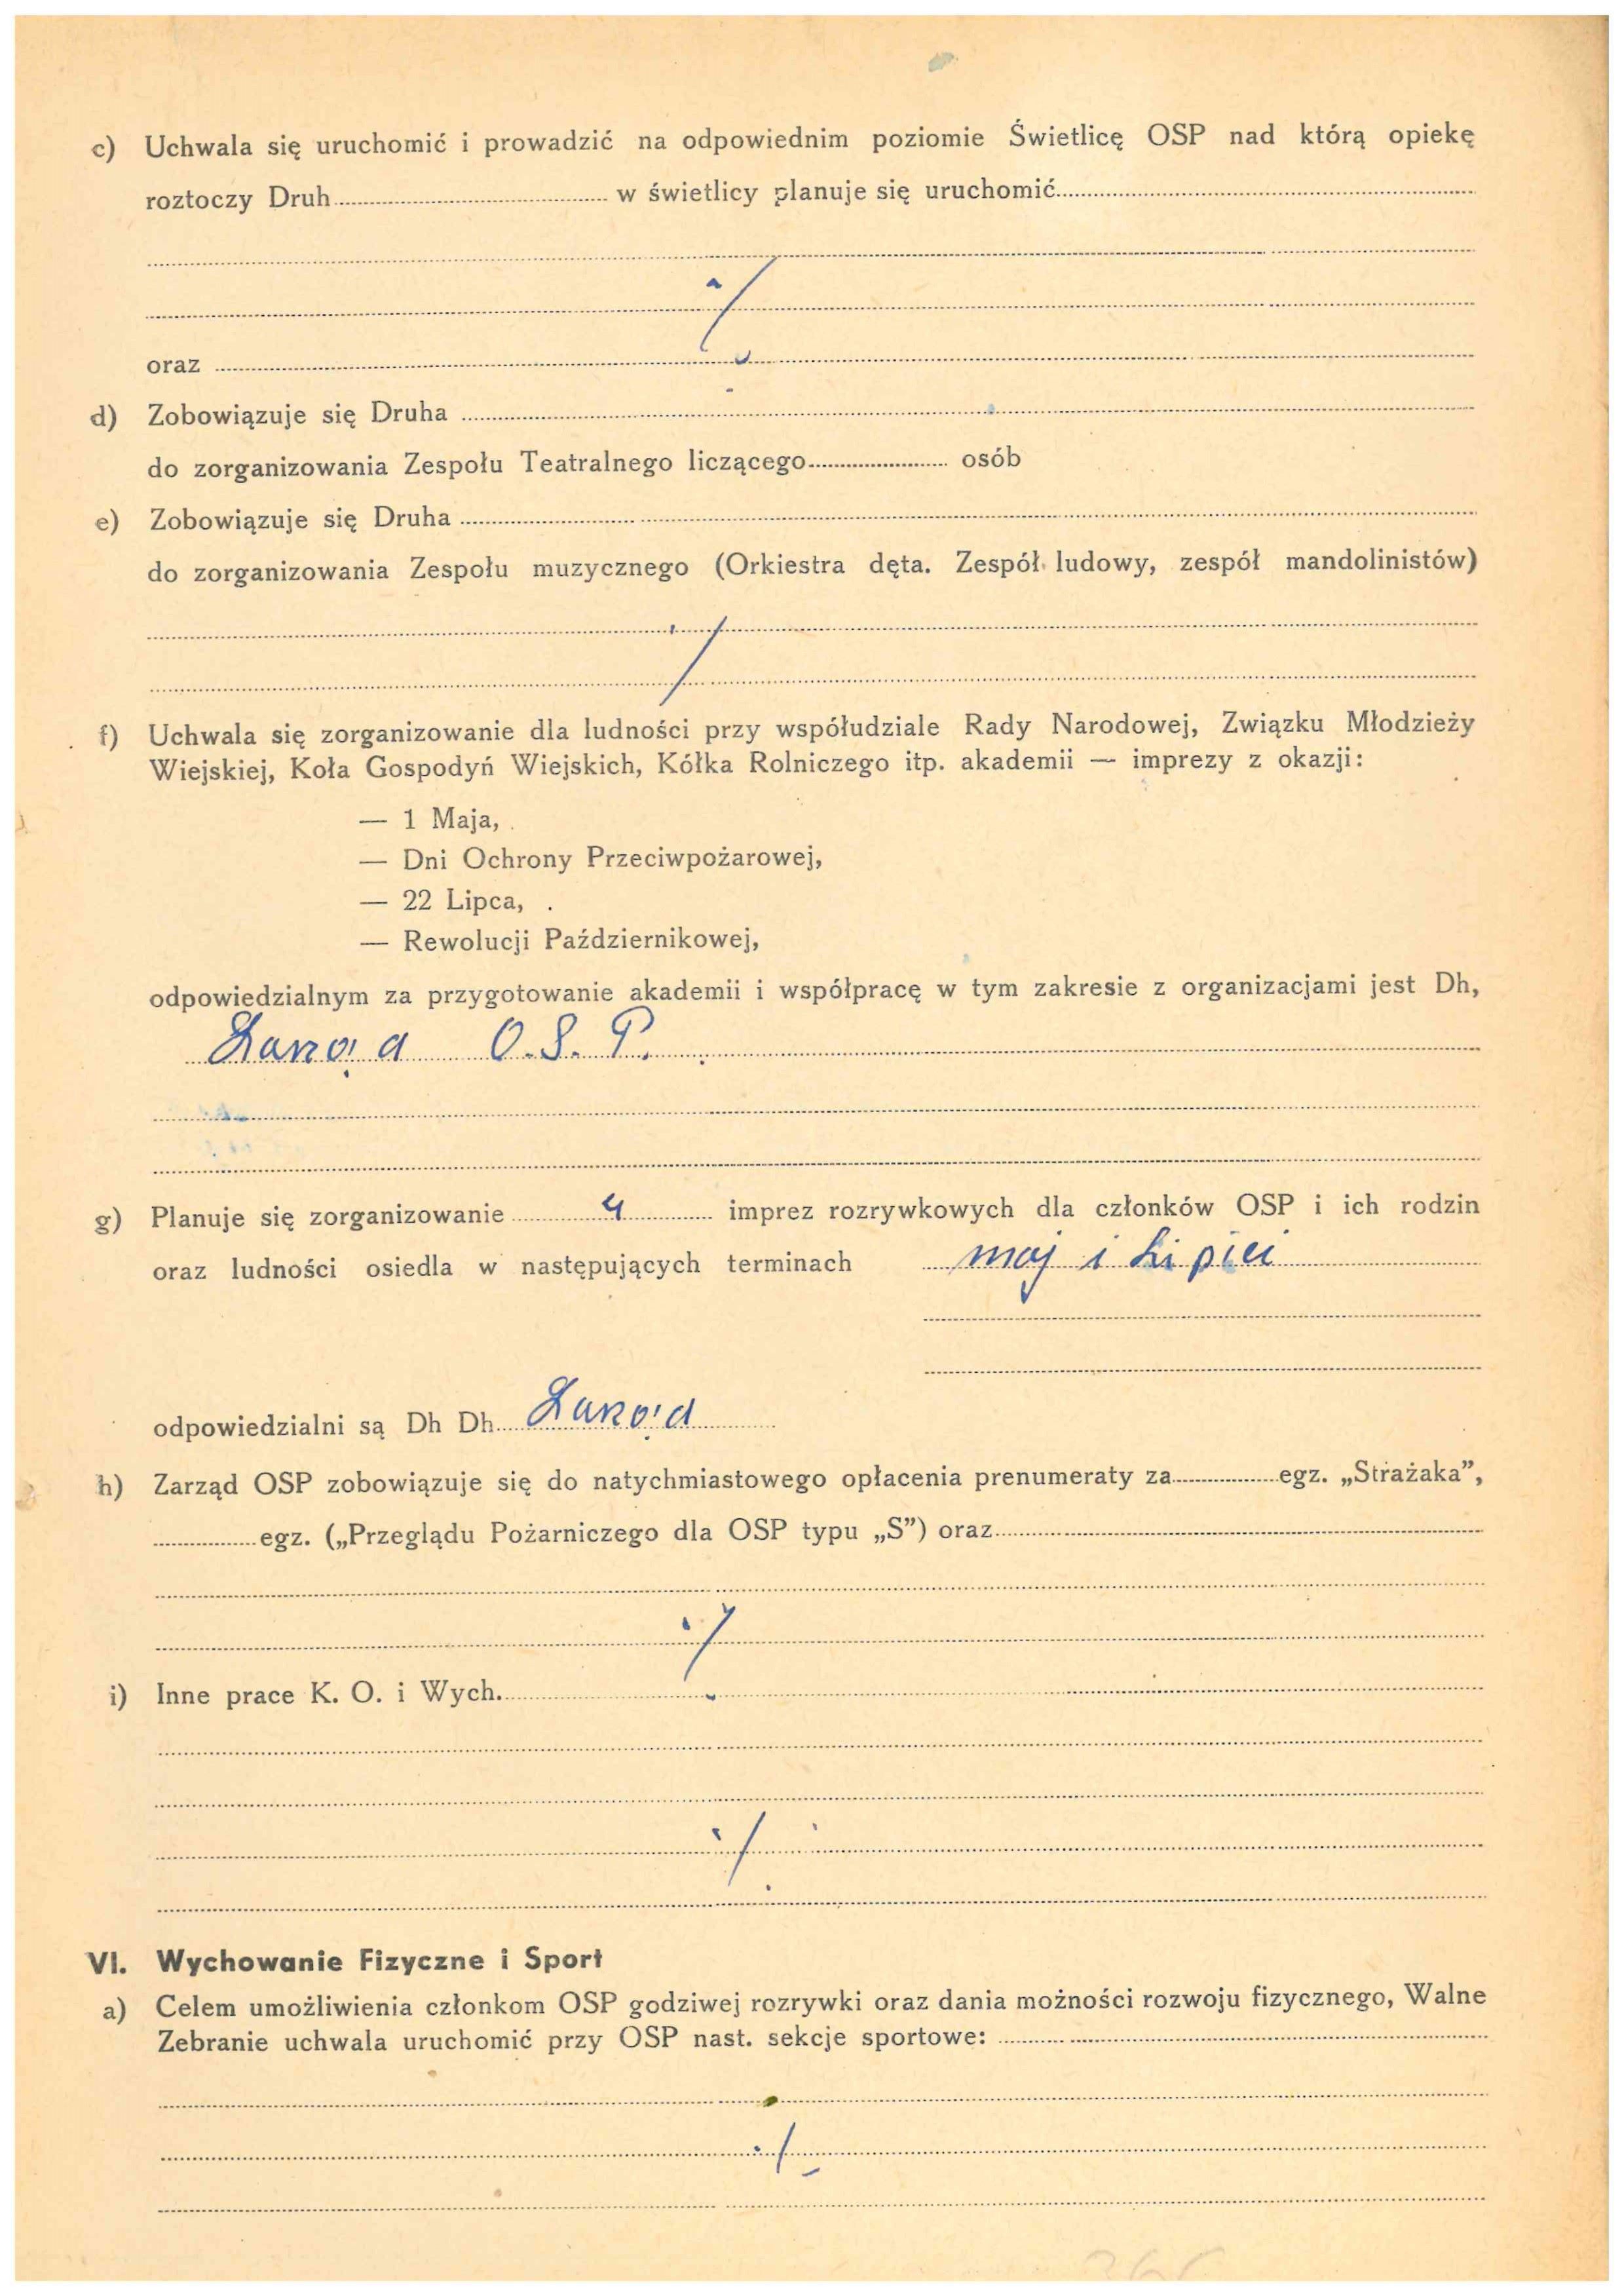 c) Uchwala się uruchomić i prowadzić na odpowiednim poziomie Świetlicę OSP nad którą opiekę
roztoczy Druh w świetlicy planuje się uruchomić
oraz
d) Zobowiązuje się Druha
do zorganizowania Zespołu Teatralnego liczącego osób
e) Zobowiązuje się Druha
do zorganizowania Zespołu muzycznego (Orkiestra dęta. Zespół ludowy, zespół mandolinistów)
f) Uchwala się zorganizowanie dla ludności przy współudziale Rady Narodowej, Związku Młodzieży
Wiejskiej, Koła Gospodyń Wiejskich, Kółka Rolniczego itp. akademii — imprezy z okazji:
— 1 Maja,
— Dni Ochrony Przeciwpożarowej,
— 22 Lipca, .
— Rewolucji Październikowej,
odpowiedzialnym za przygotowanie akademii i współpracę w tym zakresie z organizacjami jest Dh,
O.S.P.
g) Planuje się zorganizowanie 4 imprez rozrywkowych dla członków OSP i ich rodzin
oraz ludności osiedla w następujących terminach maj i Lipiec
odpowiedzialni są Dh Dh
h) Zarząd OSP zobowiązuje się do natychmiastowego opłacenia prenumeraty za egz. „Strażaka”,
egz. („Przeglądu Pożarniczego dla OSP typu „S”) oraz
i) Inne prace K. O. i Wych.
VI. Wychowanie Fizyczne i Sport
a) Celem umożliwienia członkom OSP godziwej rozrywki oraz dania możności rozwoju fizycznego, Walne
Zebranie uchwala uruchomić przy OSP nast. sekcje sportowe: